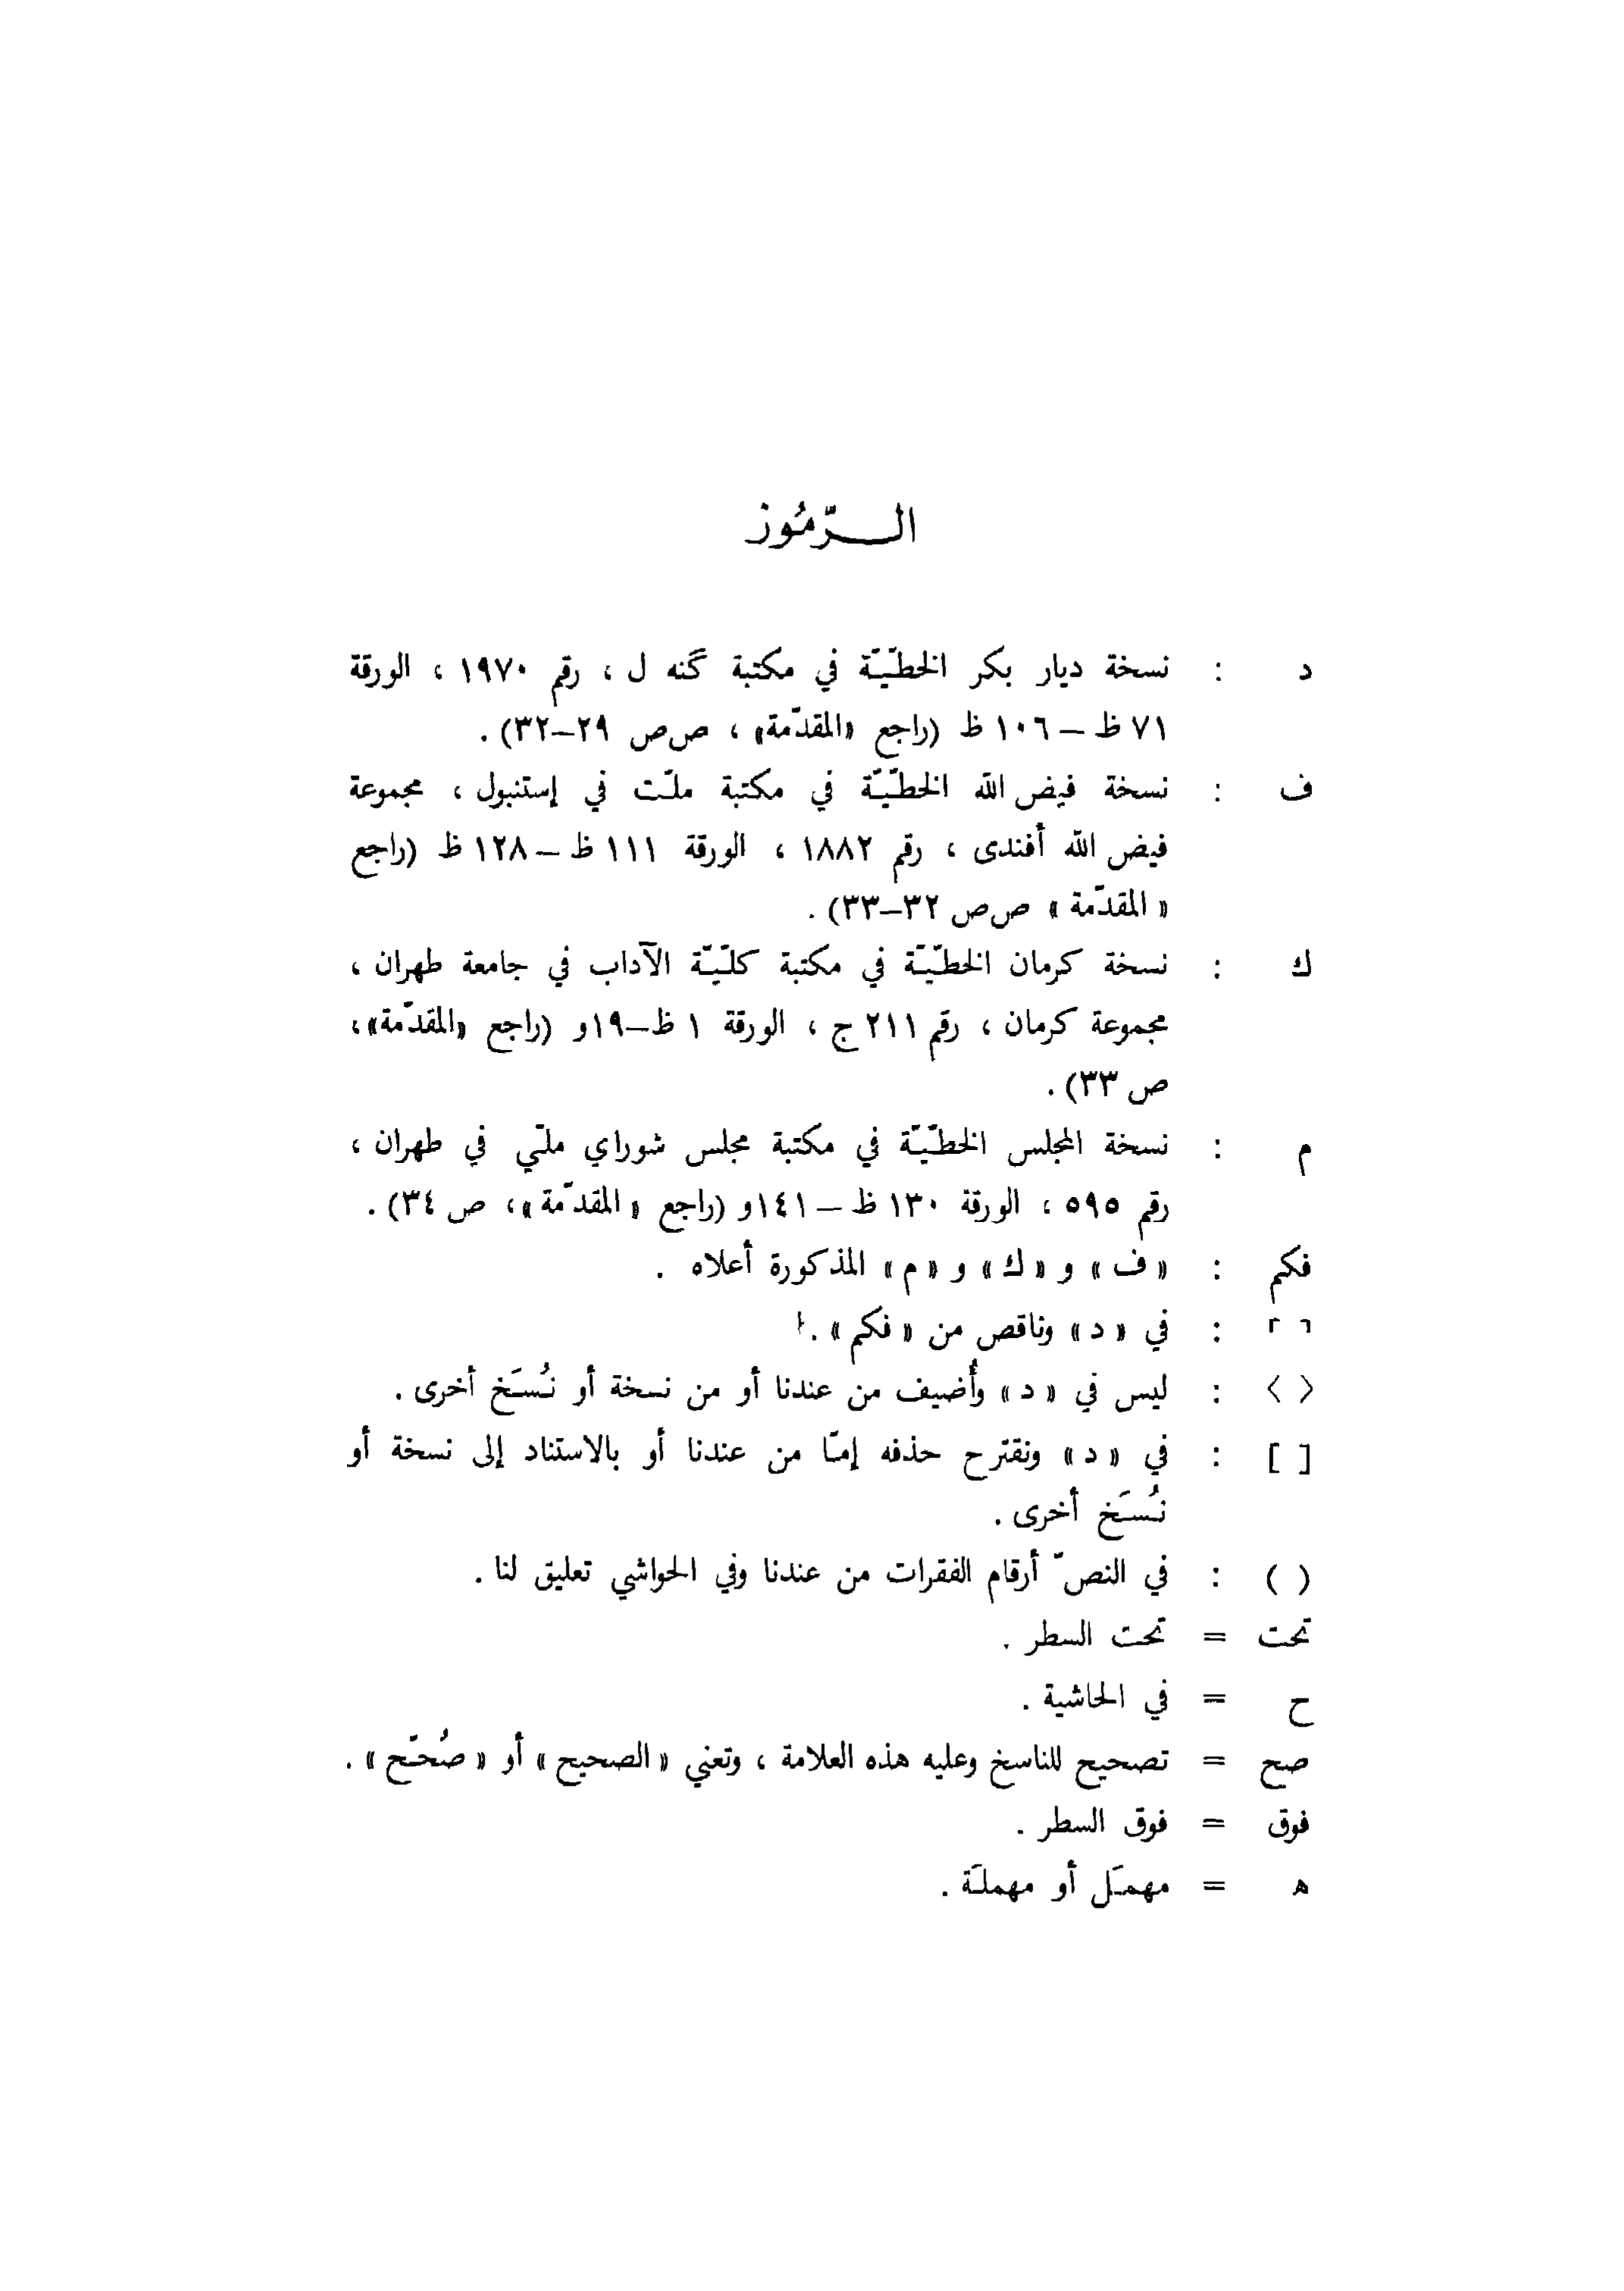 الـــرّمُوز
د : نسخة ديار بكر الخطّيّة في مكتبة گنه ل ، رقم ١٩٧٠ ، الورقة
٧١ ظ – ١٠٦ ظ (راجع «المقدّمة» ، ص‌ص ٢٩–٣٢) .
ف : نسخة فيض الله الخطّيّة في مكتبة ملّت في إستنبول ، مجموعة
فيض الله أفندى ، رقم ١٨٨٢ ، الورقة ١١١ ظ – ١٢٨ ظ (راجع
« المقدّمة » ص‌ص ٣٢–٣٣) .
ك : نسخة كرمان الخطّيّة في مكتبة كلّيّة الآداب في جامعة طهران ،
مجموعة كرمان ، رقم ٢١١ ج ، الورقة ١ ظ–١٩و (راجع «المقدّمة»،
ص ٣٣) .
م : نسخة المجلس الخطّيّة في مكتبة مجلس شوراي ملّي في طهران ،
رقم ٥٩٥ ، الورقة ١٣٠ ظ – ١٤١و (راجع « المقدّمة »، ص ٣٤) .
فكم : « ف » و «ك» و «م» المذكورة أعلاه .
⌜ ⌝ : في « د » وناقص من « فكم » .
〈 〉 : ليس في « د » وأُضيف من عندنا أو من نسخة أو نُسَخ أخرى .
[ ] : في « د » ونقترح حذفه إمّا من عندنا أو بالاستناد إلى نسخة أو
نُسَخ أخرى .
( ) : في النصّ أرقام الفقرات من عندنا وفي الحواشي تعليق لنا .
تحت = تحت السطر .
ح = في الحاشية .
صح = تصحيح للناسخ وعليه هذه العلامة ، وتعني « الصحيح » أو « صُحّح » .
فوق = فوق السطر .
ه = مهمَل أو مهملَة .